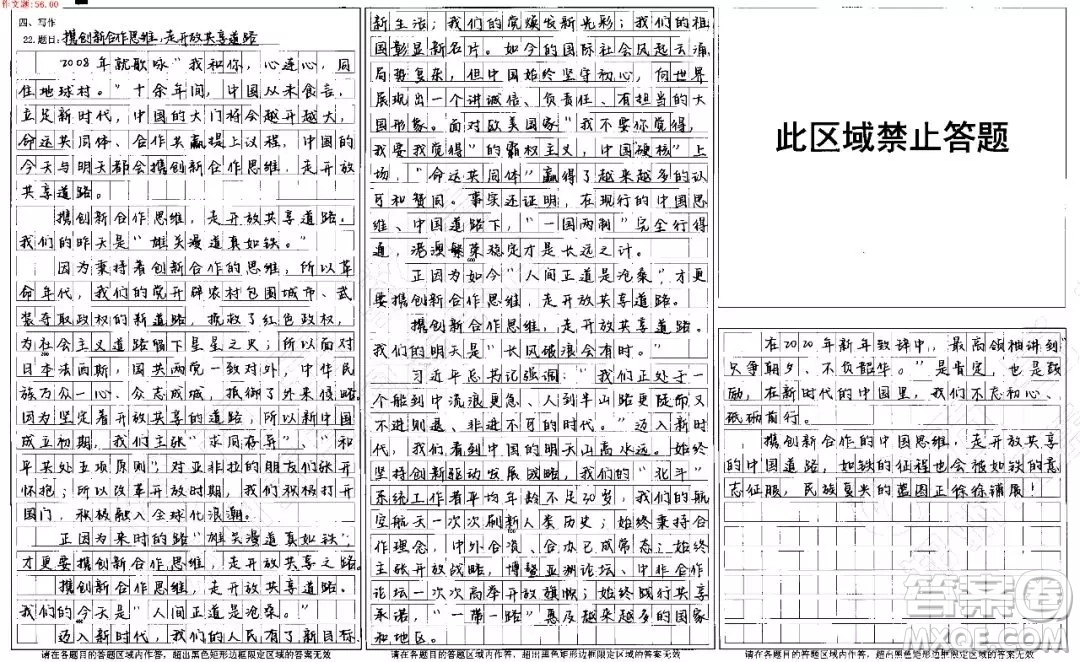 作文题:56.00
四、写作
22.题目:携创新合作思维,走开放共享道路
2008年就歌咏“我和你,心连心,同
住地球村。”十余年间,中国从未食言,
立足新时代,中国的大门将会越开越大,
命运共同体、合作共赢提上议程,中国的
今天与明天都会携创新合作思维,走开放
共享道路。
携创新合作思维,走开放共享道路。
我们的昨天是“雄关漫道真如铁。”
因为秉持着创新合作的思维,所以革
命年代,我们的党开辟农村包围城市、武
装夺取政权的新道路,挽救了红色政权,
为社会主义道路留下星星之火;所以面对
日本法西斯,国共两党一致对外,中华民
族万众一心、众志成城,抵御了外来侵略
因为坚定着开放共享的道路,所以新中国
成立初期,我们主张“求同存异”、“和
平共处五项原则”,对亚非拉的朋友们张开
怀抱;所以改革开放时期,我们积极打开
国门,积极融入全球化浪潮。
正因为来时的路“雄关漫道真如铁”
才更要携创新合作思维,走开放共享之路
携创新合作思维,走开放共享道路。
我们的今天是“人间正道是沧桑。”
迈入新时代,我们的人民有了新目标
请在各题目的答题区域内作答,超出黑色矩形边框限定区域的答案无效
新生活;我们的党焕发新光彩;我们的祖
国彰显新名片。如今的国际社会风起云涌
局势复杂,但中国始终坚守初心,向世界
展现出一个讲诚信、负责任、有担当的大
国形象。面对欧美国家“我不要你觉得,
我要我觉得”的霸权主义,中国“硬核”上
场,“命运共同体”赢得了越来越多的认
可和赞同。事实还证明,在现行的中国思
维、中国道路下,“一国两制”完全行得
通,港澳繁荣稳定才是长远之计。
正因为如今“人间正道是沧桑”才更
要携创新合作思维,走开放共享道路。
携创新合作思维,走开放共享道路。
我们的明天是“长风破浪会有时。”
习近平总书记强调:“我们正处于一
个船到中流浪更急、人到半山路更陡而又
不进则退、非进不可的时代。”迈入新时
代,我们看到中国的明天山高水远。始终
坚持创新驱动发展战略,我们的“北斗”
系统工作者平均年龄不足30岁,我们的航
空航天一次次刷新人类历史;始终秉持合
作理念,中外合资、合办已成常态;始终
主张开放战略,博鳌亚洲论坛、中非合作
论坛一次次高举开放旗帜;始终践行共享
承诺,“一带一路”惠及越来越多的国家
和地区。
请在各题目的答题区域内作答,超出黑色矩形边框限定区域的答案无效
此区域禁止答题
在2020年新年致辞中,最高领袖讲到“
只争朝夕、不负韶华。”是肯定,也是鼓
励,在新时代的中国里,我们不忘初心、
砥砺前行。
携创新合作的中国思维,走开放共享
的中国道路,如铁的征程也会被如铁的意
志征服,民族复兴的蓝图正徐徐铺展!
请在各题目的答题区域内作答,超出黑色矩形边框限定区域的答案无效
答案圈
MXQE.COM